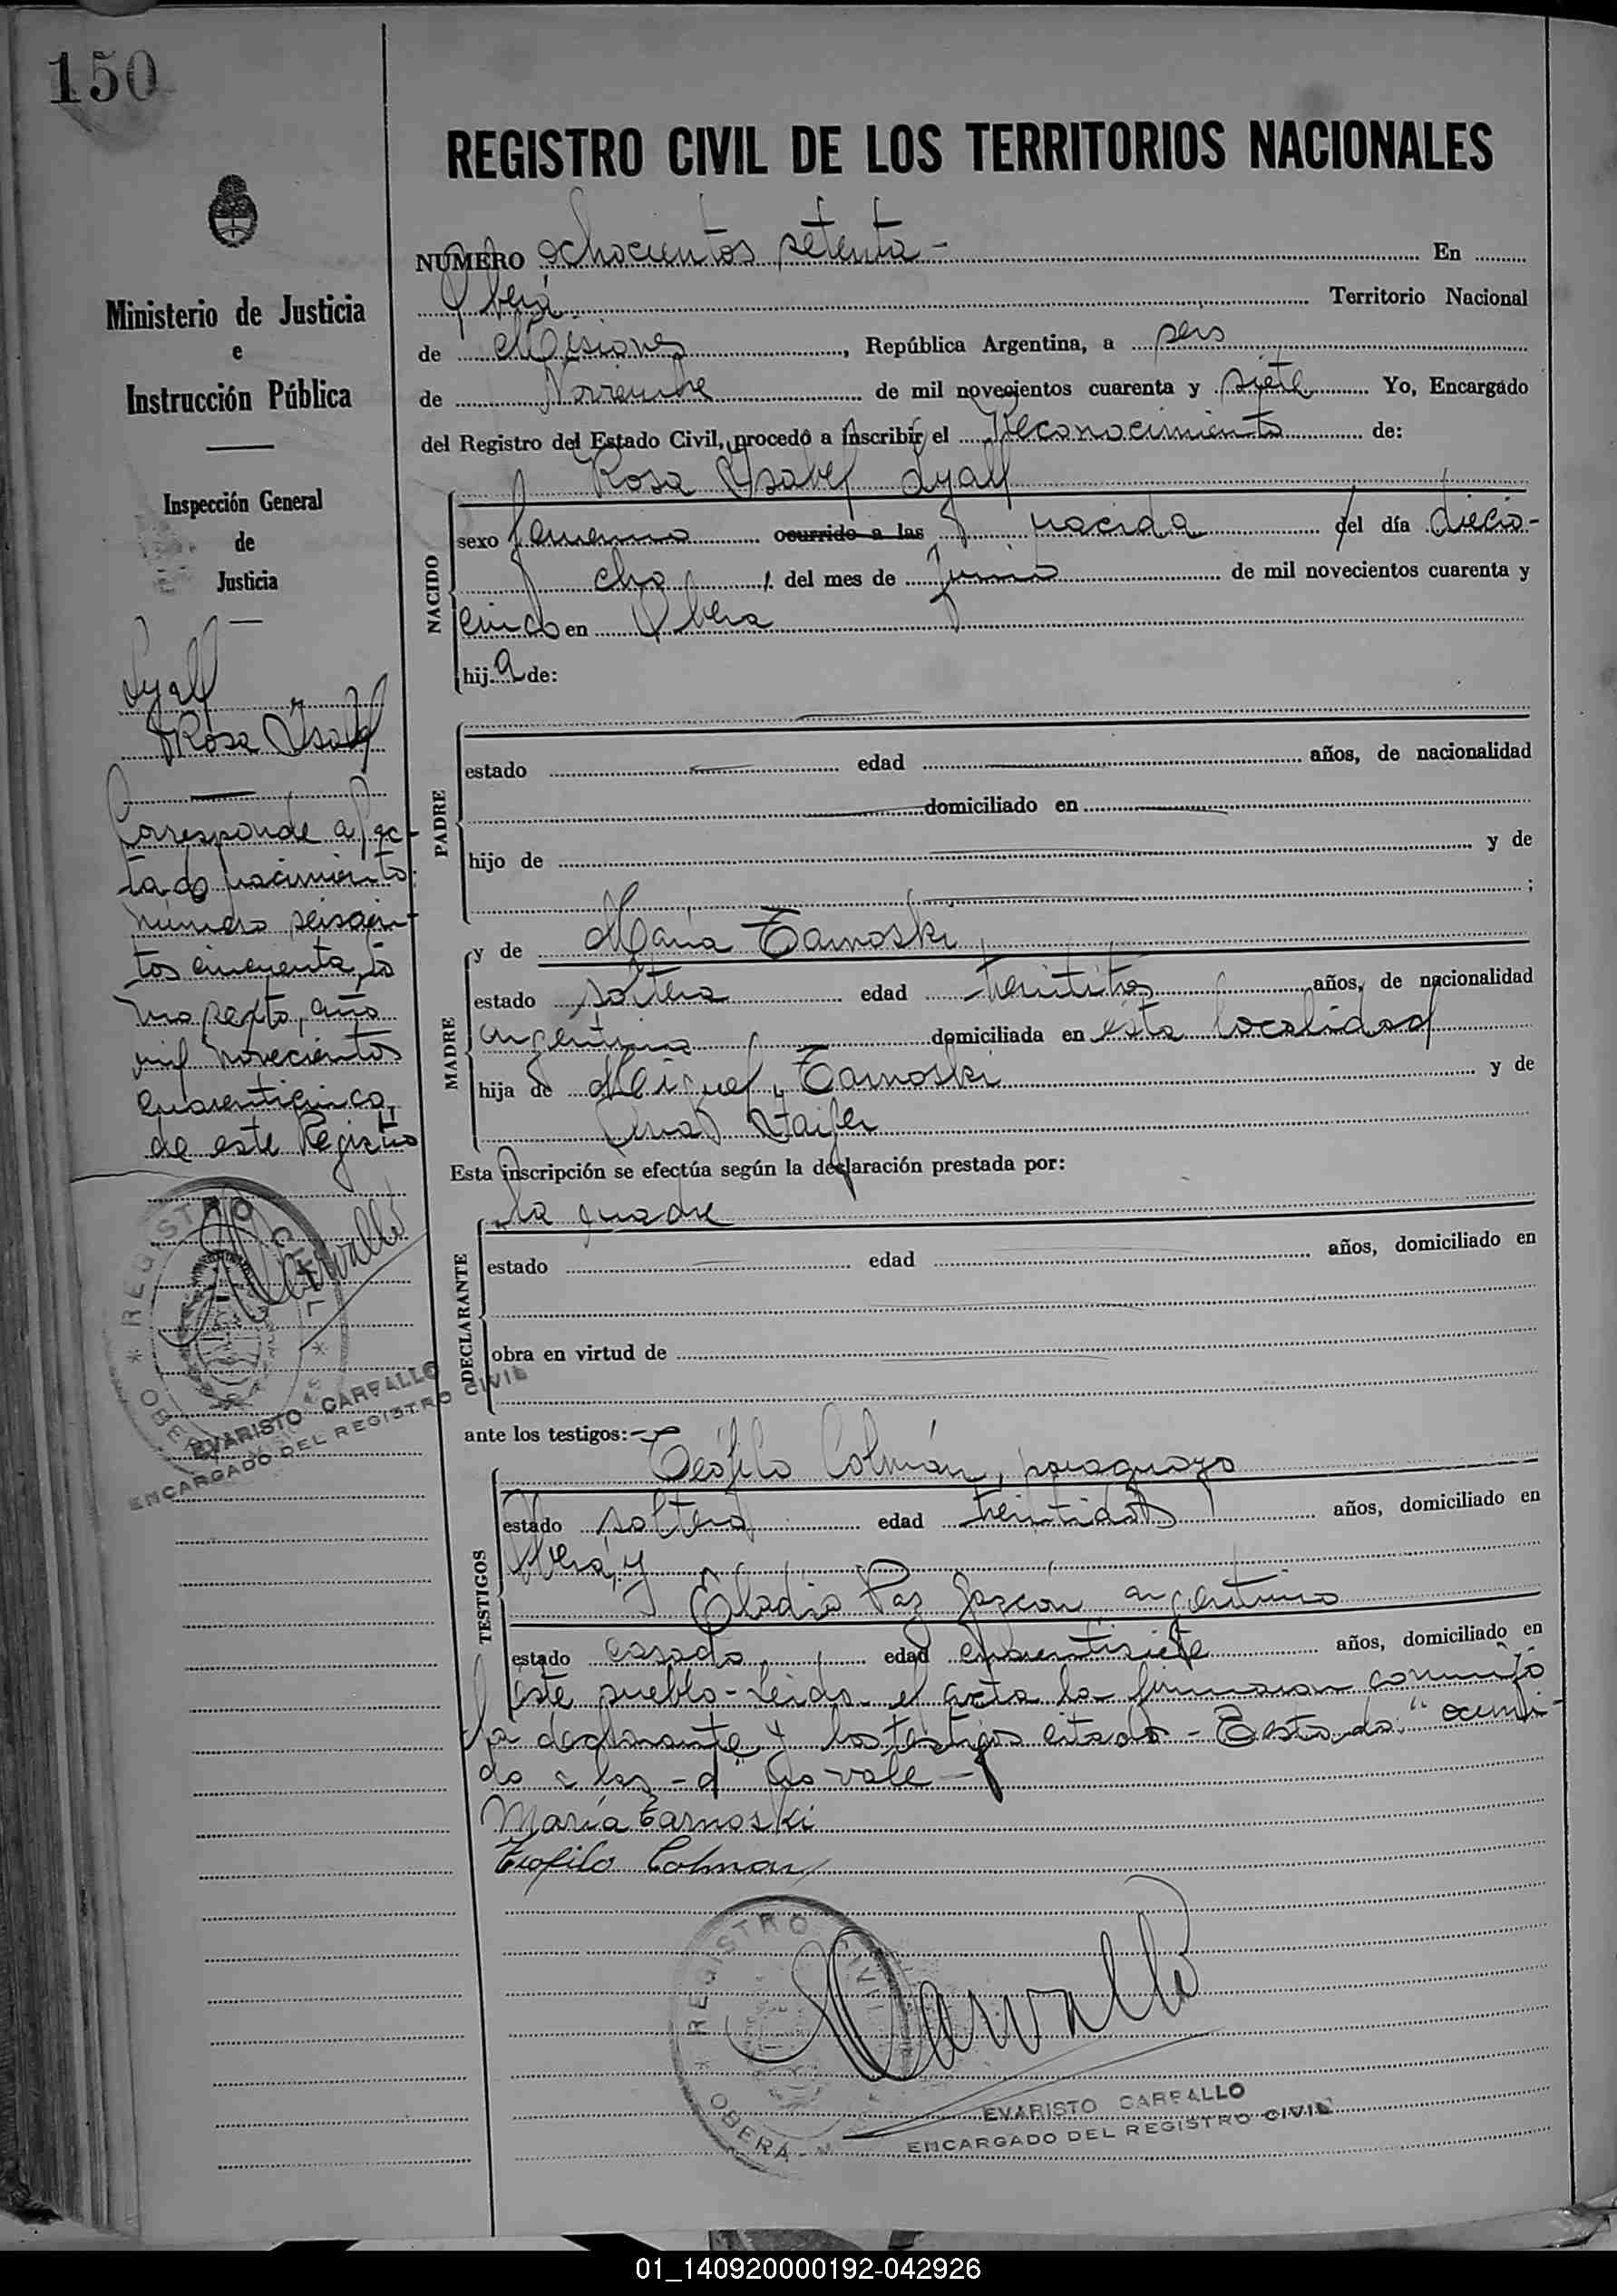 150
REGISTRO CIVIL DE LOS TERRITORIOS NACIONALES
Ministerio de Justicia
e
Instrucción Pública
Inspección General
de
Justicia
Lyall
Rosa Isabel
Corresponde al ac-
ta de nacimiento
número seiscien-
tos cincuenta, to
mo sexto, año
mil novecientos
cuarenticinco,
de este Registro
Carvallo
REGISTRO CIVIL
OBERA
EVARISTO CARBALLO
ENCARGADO DEL REGISTRO CIVIL
NUMERO ochocientos setenta - En
Oberá Territorio Nacional
de Misiones, República Argentina, a seis
de Noviembre de mil novecientos cuarenta y siete Yo, Encargado
del Registro del Estado Civil, procedo a inscribir el Reconocimiento de:
Rosa Isabel Lyall
NACIDO
sexo femenino ocurrido a las nacida del día diecio-
cho del mes de Junio de mil novecientos cuarenta y
cinco en Obera
hija de:
PADRE
estado edad años, de nacionalidad
domiciliado en
hijo de y de
;
MADRE
y de María Tarnoski
estado soltera edad años, de nacionalidad
argentina domiciliada en esta localidad
hija de Miguel Tarnoski y de
Esta inscripción se efectúa según la declaración prestada por:
DECLARANTE
la madre
estado edad años, domiciliado en
obra en virtud de
ante los testigos:
TESTIGOS
Teófilo Colmán, paraguayo
estado soltero edad treintidos años, domiciliado en
Oberá, y
Eladio Paz Gascón, argentino
estado casado edad cuarentisiete años, domiciliado en
este pueblo - Leída el acta la firmaron conmigo
la declarante y los testigos citados - Testado: "ocurri-
do a las - d" No vale -
María Tarnoski
Teofilo Colman
REGISTRO CIVIL
OBERA
Carvallo
EVARISTO CARBALLO
ENCARGADO DEL REGISTRO CIVIL
01_140920000192-042926